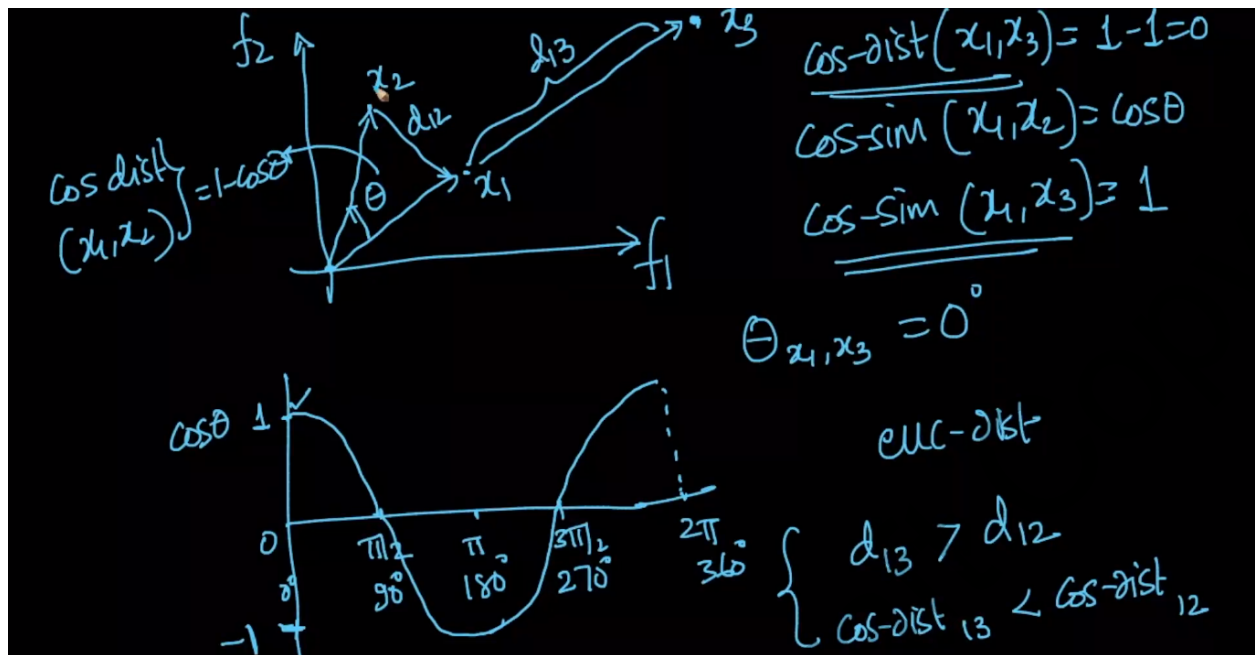 f₂
x₂
d₁₂
d₁₃
x₃
x₁
θ
f₁
cos dist
(x₁,x₂)} = 1-cosθ
cos-dist(x₁,x₃) = 1-1=0
cos-sim (x₁,x₂) = cosθ
cos-sim (x₁,x₃) = 1
θ x₁,x₃ = 0°
cosθ 1
0 π/2 π 3π/2 2π
0° 90° 180° 270° 360°
-1
euc-dist
{ d₁₃ > d₁₂
cos-dist ₁₃ < cos-dist ₁₂